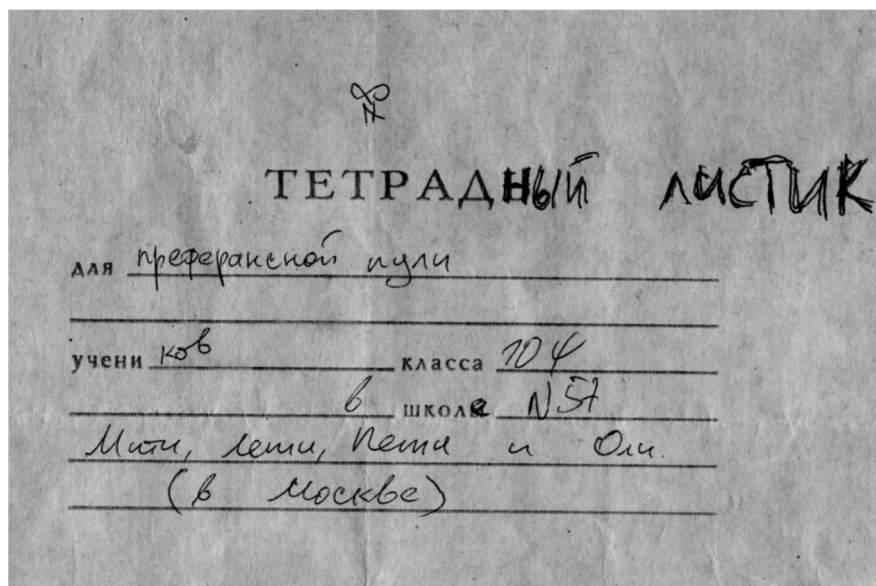 ТЕТРАДНЫЙ ЛИСТИК
для преферансной пули
учени ков класса 10 Ч
в школе N 57
Мити, Лёши, Пети и Оли.
(в Москве)